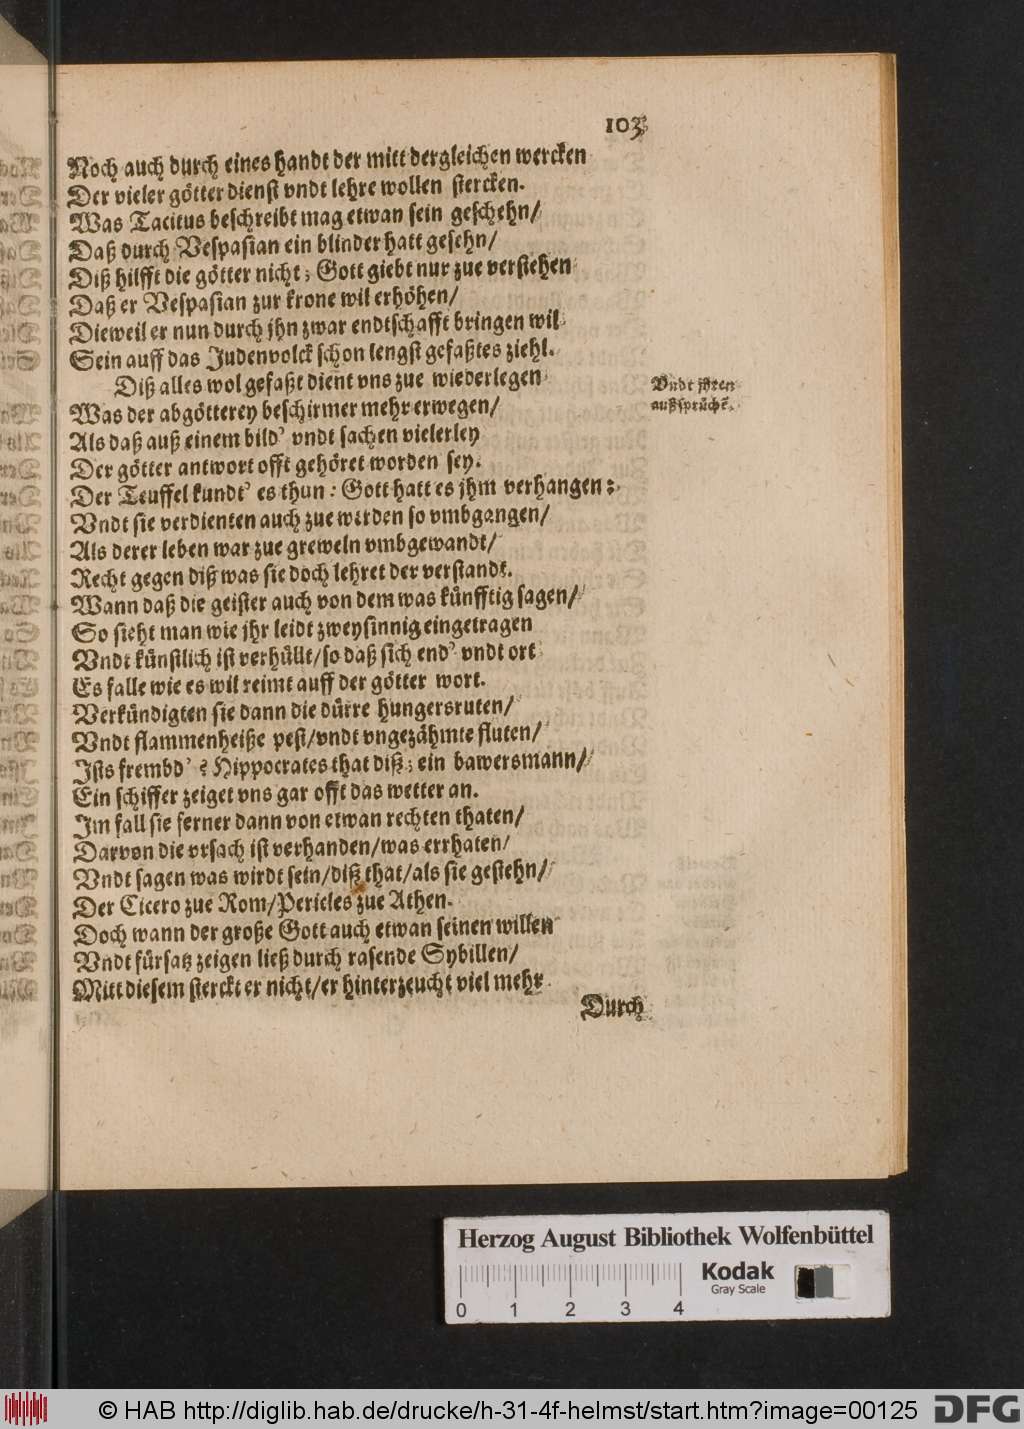 103
Noch auch durch eines handt der mitt dergleichen wercken
Der vieler götter dienst vndt lehre wollen stercken.
Was Tacitus beschreibt mag etwan sein geschehn/
Daß durch Vespasian ein blinder hatt gesehn/
Diß hilfft die götter nicht; Gott giebt nur zue verstehen
Daß er Vespasian zur krone wil erhöhen/
Dieweil er nun durch jhn zwar endtschafft bringen wil
Sein auff das Judenvolck schon lengst gefaßtes ziehl.
Diß alles wol gefaßt dient vns zue wiederlegen
Vndt jhren
außsprüchẽ.
Was der abgötterey beschirmer mehr erwegen/
Als daß auß einem bild' vndt sachen vielerley
Der götter antwort offt gehöret worden sey.
Der Teuffel kundt' es thun: Gott hatt es jhm verhangen;
Vndt sie verdienten auch zue werden so vmbgangen/
Als derer leben war zue greweln vmbgewandt/
Recht gegen diß was sie doch lehret der verstandt.
Wann daß die geister auch von dem was künfftig sagen/
So sieht man wie jhr leidt zweysinnig eingetragen
Vndt künstlich ist verhüllt/so daß sich end' vndt ort
Es falle wie es wil reimt auff der götter wort.
Verkündigten sie dann die dürre hungersruten/
Vndt flammenheiße pest/vndt vngezähmte fluten/
Ists frembd' ? Hippocrates that diß; ein bawersmann/
Ein schiffer zeiget vns gar offt das wetter an.
Im fall sie ferner dann von etwan rechten thaten/
Darvon die vrsach ist verhanden/was errhaten/
Vndt sagen was wirdt sein/diß that/als sie gestehn/
Der Cicero zue Rom/Pericles zue Athen.
Doch wann der große Gott auch etwan seinen willen
Vndt fürsatz zeigen ließ durch rasende Sybillen/
Mitt diesem sterckt er nicht/er hinterzeucht viel mehr
Durch
Herzog August Bibliothek Wolfenbüttel
Kodak
Gray Scale
0 1 2 3 4
© HAB http://diglib.hab.de/drucke/h-31-4f-helmst/start.htm?image=00125
DFG